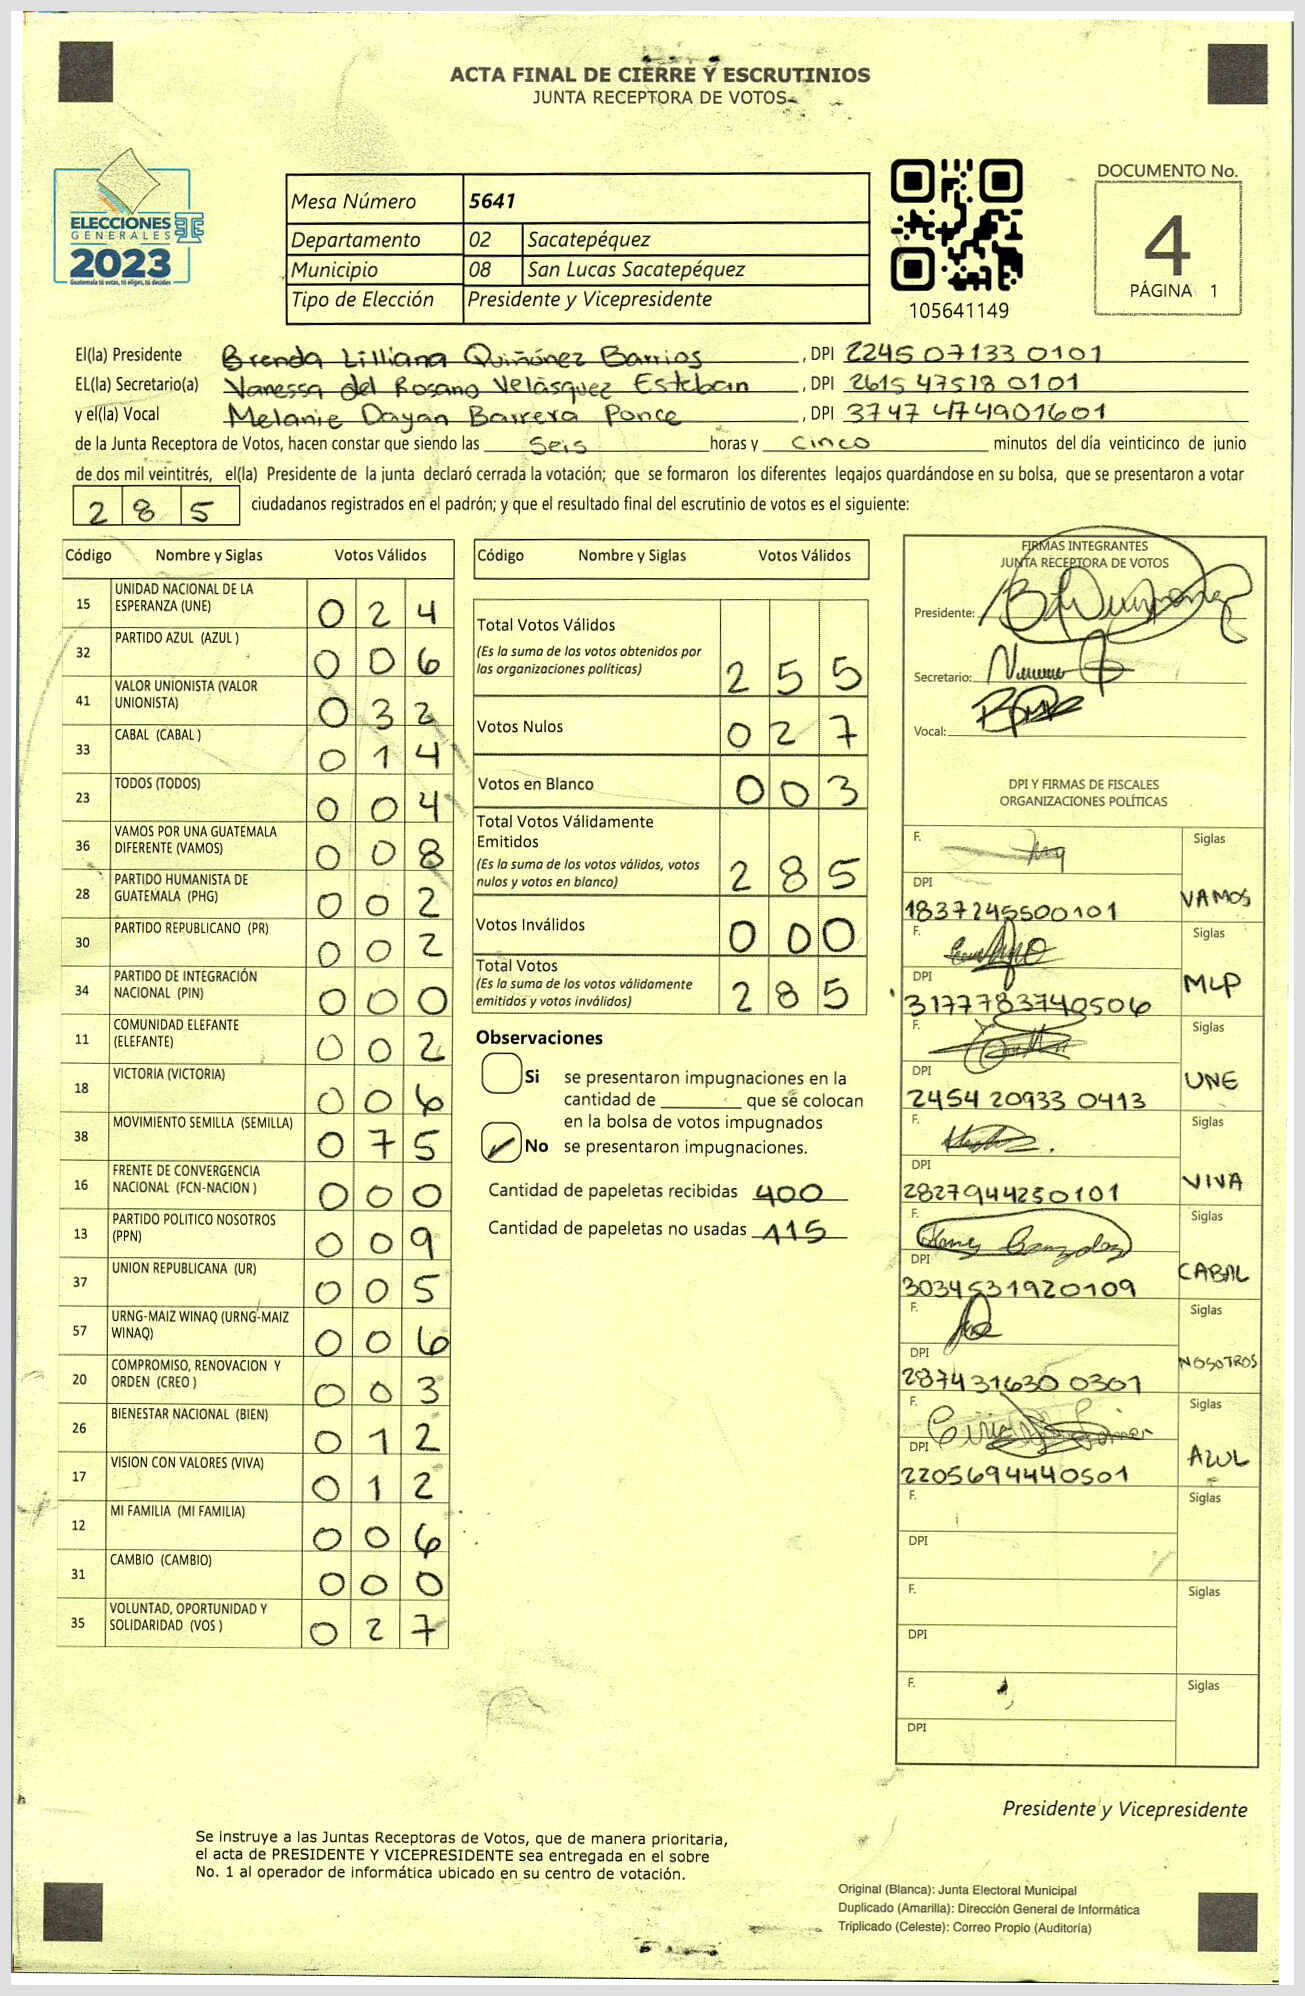 ACTA FINAL DE CIERRE Y ESCRUTINIOS
JUNTA RECEPTORA DE VOTOS
ELECCIONES
GENERALES
2023
Guatemala tú votas, tú eliges, tú decides
Mesa Número 5641
Departamento 02 Sacatepéquez
Municipio 08 San Lucas Sacatepéquez
Tipo de Elección Presidente y Vicepresidente
105641149
DOCUMENTO No.
4
PÁGINA 1
El(la) Presidente Brenda Lilliana Quiñónez Barrios, DPI 2245 07133 0101
EL(la) Secretario(a) Vanessa del Rosario Velásquez Esteban, DPI 2615 47518 0101
y el(la) Vocal Melanie Dayan Barrera Ponce, DPI 3747 474901601
de la Junta Receptora de Votos, hacen constar que siendo las seis horas y cinco minutos del día veinticinco de junio
de dos mil veintitrés, el(la) Presidente de la junta declaró cerrada la votación; que se formaron los diferentes legajos guardándose en su bolsa, que se presentaron a votar
285 ciudadanos registrados en el padrón; y que el resultado final del escrutinio de votos es el siguiente:
Código Nombre y Siglas Votos Válidos
15 UNIDAD NACIONAL DE LA ESPERANZA (UNE) 024
32 PARTIDO AZUL (AZUL ) 006
41 VALOR UNIONISTA (VALOR UNIONISTA) 032
33 CABAL (CABAL ) 014
23 TODOS (TODOS) 004
36 VAMOS POR UNA GUATEMALA DIFERENTE (VAMOS) 008
28 PARTIDO HUMANISTA DE GUATEMALA (PHG) 002
30 PARTIDO REPUBLICANO (PR) 002
34 PARTIDO DE INTEGRACIÓN NACIONAL (PIN) 000
11 COMUNIDAD ELEFANTE (ELEFANTE) 002
18 VICTORIA (VICTORIA) 006
38 MOVIMIENTO SEMILLA (SEMILLA) 075
16 FRENTE DE CONVERGENCIA NACIONAL (FCN-NACION ) 000
13 PARTIDO POLITICO NOSOTROS (PPN) 009
37 UNION REPUBLICANA (UR) 005
57 URNG-MAIZ WINAQ (URNG-MAIZ WINAQ) 006
20 COMPROMISO, RENOVACION Y ORDEN (CREO ) 003
26 BIENESTAR NACIONAL (BIEN) 012
17 VISION CON VALORES (VIVA) 012
12 MI FAMILIA (MI FAMILIA) 006
31 CAMBIO (CAMBIO) 000
35 VOLUNTAD, OPORTUNIDAD Y SOLIDARIDAD (VOS ) 027
Código Nombre y Siglas Votos Válidos
Total Votos Válidos
(Es la suma de los votos obtenidos por
las organizaciones políticas) 255
Votos Nulos 027
Votos en Blanco 003
Total Votos Válidamente
Emitidos
(Es la suma de los votos válidos, votos
nulos y votos en blanco) 285
Votos Inválidos 000
Total Votos
(Es la suma de los votos válidamente
emitidos y votos inválidos) 285
Observaciones
Si se presentaron impugnaciones en la
cantidad de ________ que se colocan
en la bolsa de votos impugnados
No se presentaron impugnaciones.
Cantidad de papeletas recibidas 400
Cantidad de papeletas no usadas 115
FIRMAS INTEGRANTES
JUNTA RECEPTORA DE VOTOS
Presidente:
Secretario:
Vocal:
DPI Y FIRMAS DE FISCALES
ORGANIZACIONES POLÍTICAS
F. Siglas
DPI
1837245500101 VAMOS
F. Siglas
DPI
3177783740506 MLP
F. Siglas
DPI
2454 20933 0413 UNE
F. Siglas
DPI
2827944250101 VIVA
F. Siglas
DPI
3034531920109 CABAL
F. Siglas
DPI
287431630 0301 NOSOTROS
F. Siglas
DPI
2205694440501 AZUL
F. Siglas
DPI
F. Siglas
DPI
F. Siglas
DPI
Presidente y Vicepresidente
Se instruye a las Juntas Receptoras de Votos, que de manera prioritaria,
el acta de PRESIDENTE Y VICEPRESIDENTE sea entregada en el sobre
No. 1 al operador de informática ubicado en su centro de votación.
Original (Blanca): Junta Electoral Municipal
Duplicado (Amarilla): Dirección General de Informática
Triplicado (Celeste): Correo Propio (Auditoría)